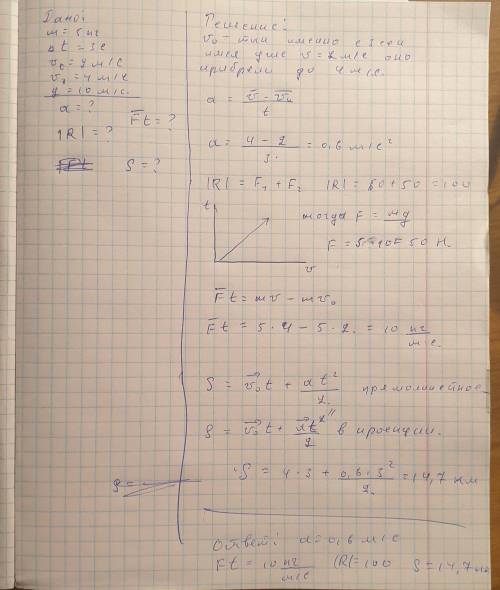 Дано:
m = 5 кг
Δt = 3с
v₀ = 2 м/с
v₁ = 4 м/с
g = 10 м/с.
a = ?
F̄t = ?
|R| = ?
S = ?
Решение:
v₀ - тк именно
имея уже v = 2 м/с оно
приобрело до 4 м/с.
a = v̄ - v̄₀ / t
a = 4 - 2 / 3. = 0,6 м/с²
|R| = F₁ + F₂ |R| = 50 + 50 = 100
t
тогда F = mg
F = 5 · 10 = 50 Н
v
F̄t = mv - mv₀
F̄t = 5 · 4 - 5 · 2. = 10 кг / м/с.
S = v⃗₀t + at² / 2. прямолинейное
S = v⃗₀t + at² / 2 " в проекции.
S = 4 · 3 + 0,6 · 3² / 2. = 14,7 км
S =
Ответ: a = 0,6 м/с
Ft = 10 кг / м/с |R| = 100 S = 14,7 км